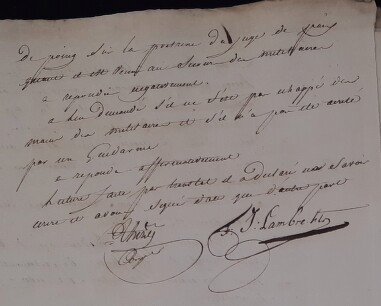 De poing sur la poitrine du juge de paix
et est venu au secours du militaire
a repondu negativement.
a lui demandé s'il ne s'est pas echappé des
mains du militaire et s'il n'a pas été arreté
par un Gendarme
a repondu affirmativement
lecture faite a declaré ne savoir
ecrire et avons signé date que d'autre part
J. Lambrechts